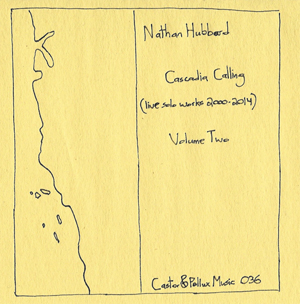 Nathan Hubbard
Cascadia Calling
(live solo works 2000-2014)
Volume Two
Castor & Pollux Music 036